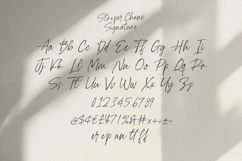 Streper Chome
Signature
Aa Bb Cc Dd Ee Ff Gg Hh Ii
Jj Kk Ll Mm Nn Oo Pp Qq Rr
Ss Tt Uu Vv Ww Xx Yy Zz
0123456789